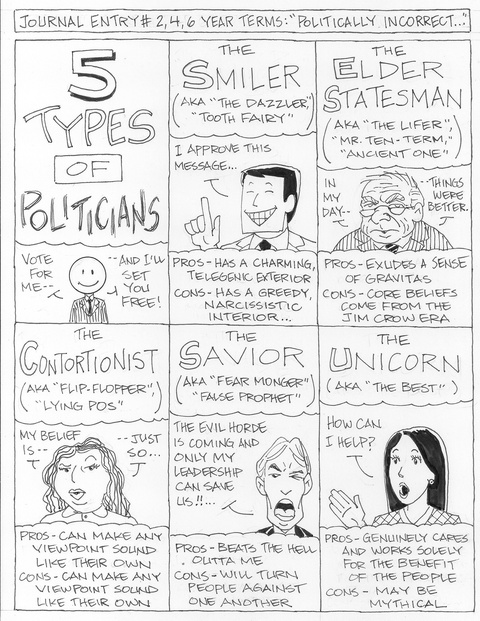 JOURNAL ENTRY# 2,4,6 YEAR TERMS: "POLITICALLY INCORRECT..."
5
TYPES
OF
POLITICIANS
VOTE
FOR
ME--
--AND I'LL
SET
YOU
FREE!
THE
SMILER
(AKA "THE DAZZLER",
"TOOTH FAIRY")
I APPROVE THIS
MESSAGE...
PROS-HAS A CHARMING,
TELEGENIC EXTERIOR
CONS-HAS A GREEDY,
NARCISSISTIC
INTERIOR...
THE
ELDER
STATESMAN
(AKA "THE LIFER",
"MR. TEN-TERM,"
"ANCIENT ONE")
IN
MY
DAY--
--THINGS
WERE
BETTER.
PROS-EXUDES A SENSE
OF GRAVITAS
CONS-CORE BELIEFS
COME FROM THE
JIM CROW ERA
THE
CONTORTIONIST
(AKA "FLIP-FLOPPER",
"LYING POS")
MY BELIEF
IS--
--JUST
SO...
PROS-CAN MAKE ANY
VIEWPOINT SOUND
LIKE THEIR OWN
CONS-CAN MAKE ANY
VIEWPOINT SOUND
LIKE THEIR OWN
THE
SAVIOR
(AKA "FEAR MONGER"
"FALSE PROPHET")
THE EVIL HORDE
IS COMING AND
ONLY MY
LEADERSHIP
CAN SAVE
US!!...
PROS-BEATS THE HELL
OUTTA ME
CONS-WILL TURN
PEOPLE AGAINST
ONE ANOTHER
THE
UNICORN
(AKA "THE BEST")
HOW CAN
I HELP?
PROS-GENUINELY CARES
AND WORKS SOLELY
FOR THE BENEFIT
OF THE PEOPLE
CONS-MAY BE
MYTHICAL